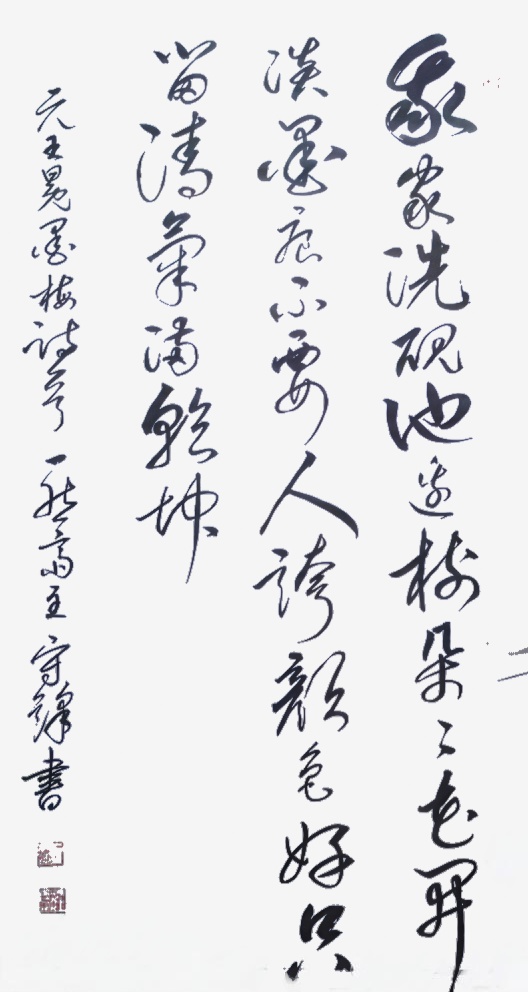 我家洗硯池邊樹朵々花開
淡墨痕不要人誇顏色好只
留清氣滿乾坤
元王冕墨梅詩 一 齋主 守鋒書